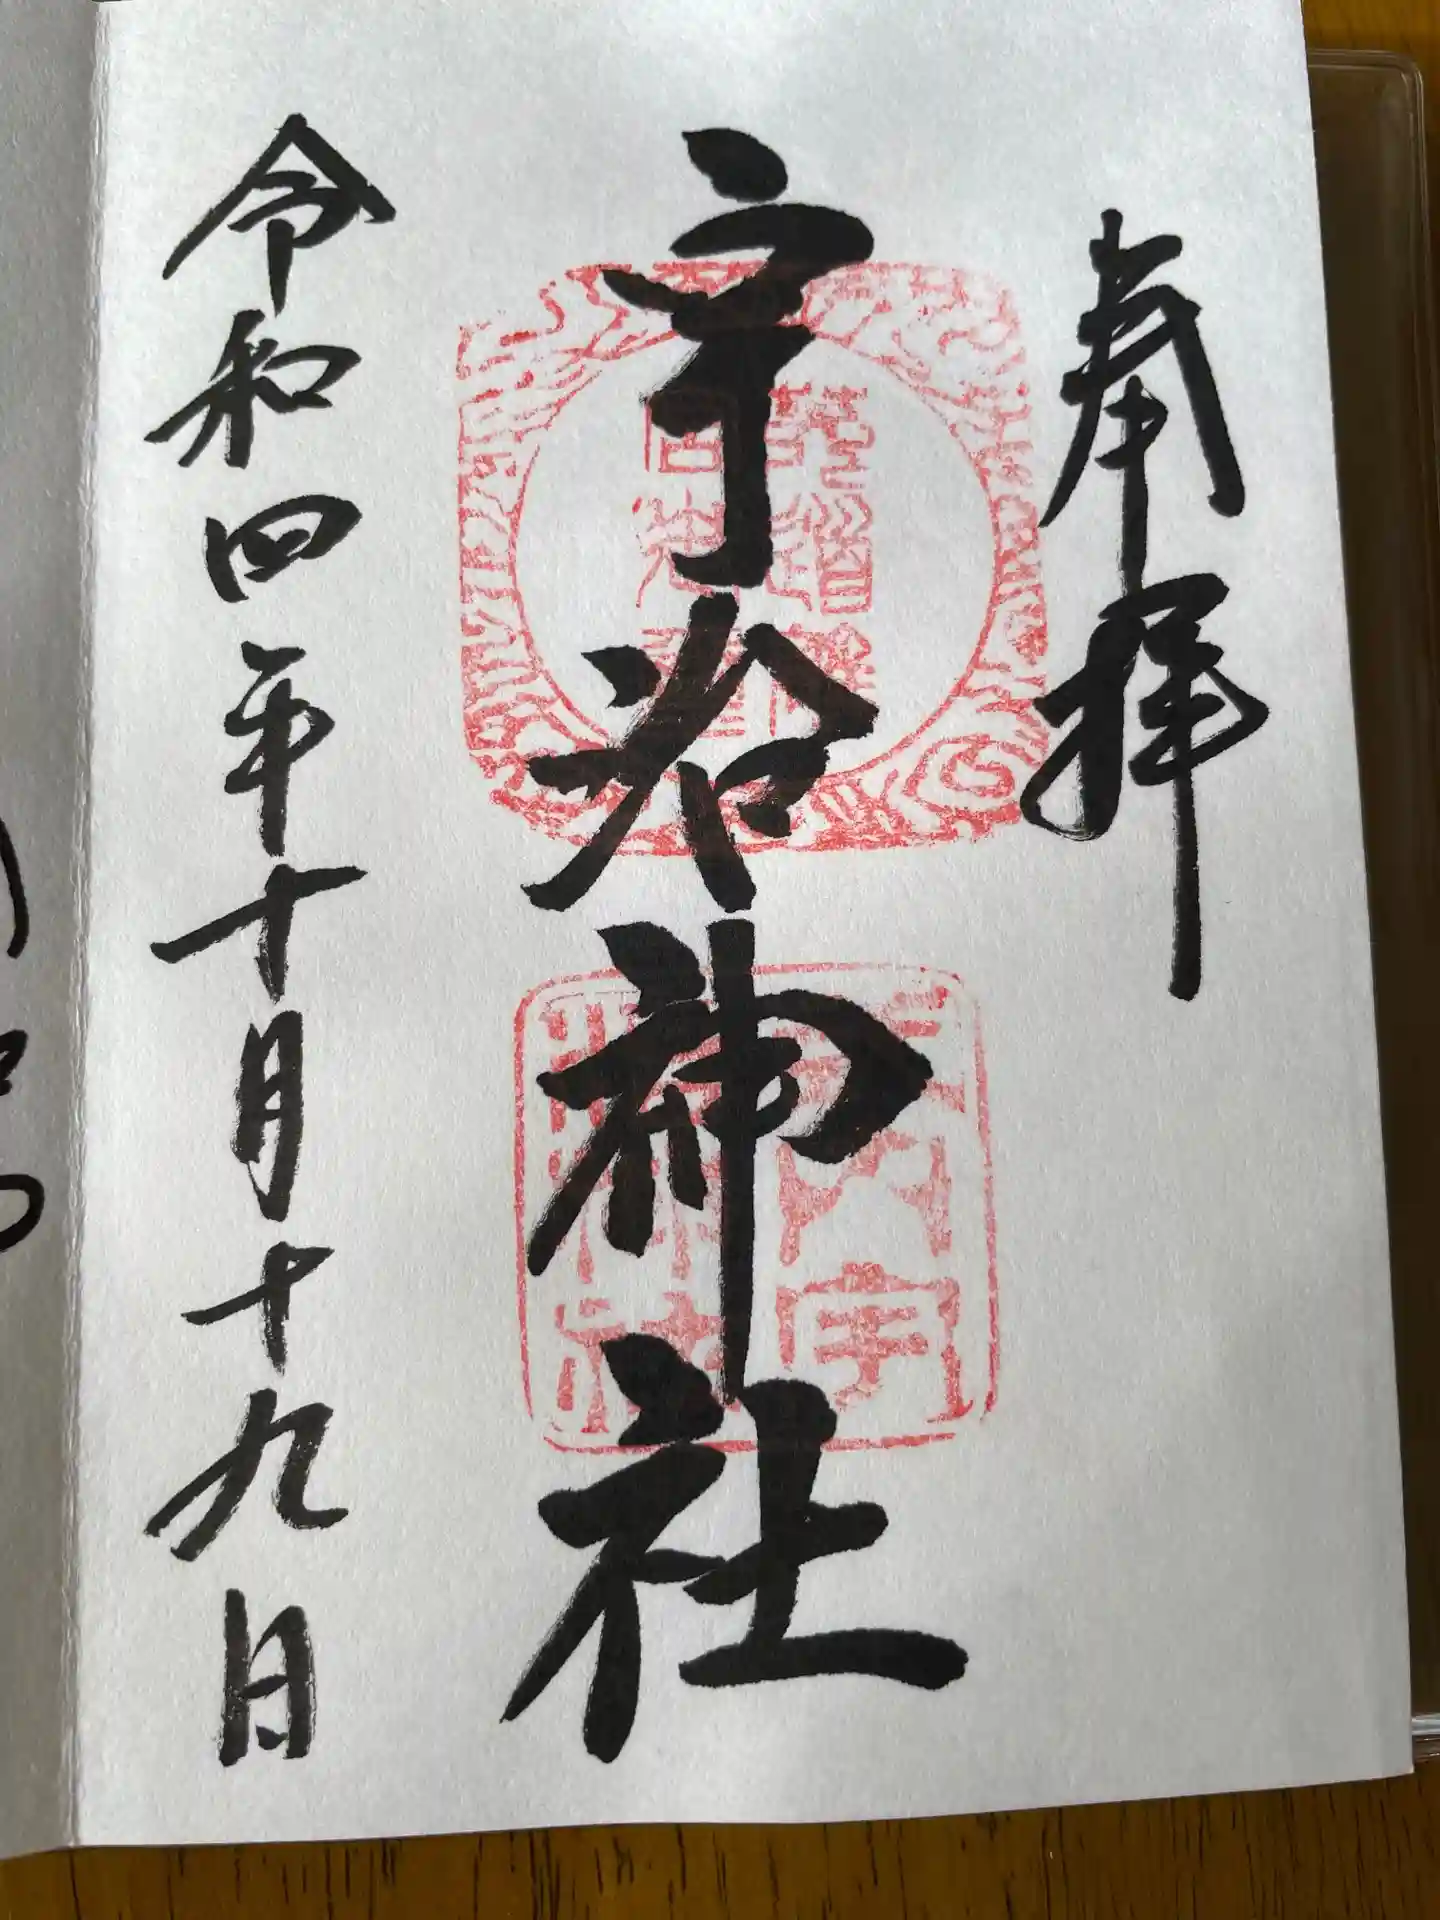 奉拝
宇治神社
令和四年十月十九日